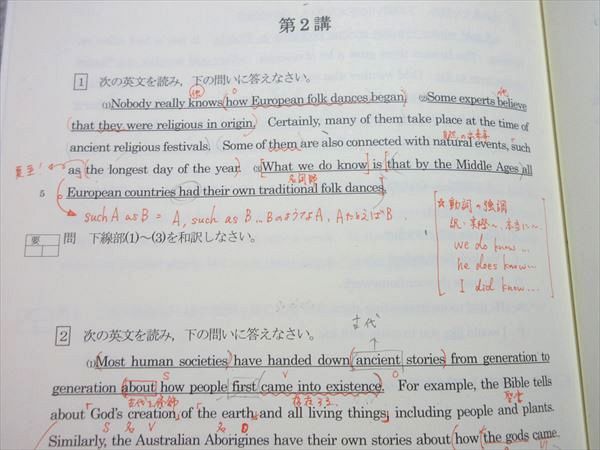 第2講
1 次の英文を読み，下の問いに答えなさい。
他 O 他
(1)Nobody really knows how European folk dances began. (2)Some experts believe
that they were religious in origin. Certainly, many of them take place at the time of
ancient religious festivals. Some of them are also connected with natural events, such
as the longest day of the year. (3)What we do know is that by the Middle Ages all
名詞節
5 European countries had their own traditional folk dances.
such A as B = A, such as B … BのようなA, Aたとえば B
☆動詞の強調
訳・実際〜、本当に〜
we do know...
he does know...
I did know...
要 問 下線部(1)〜(3)を和訳しなさい。
2 次の英文を読み，下の問いに答えなさい。
古代
(1)Most human societies have handed down ancient stories from generation to
S V O
generation about how people first came into existence. For example, the Bible tells
存在する 聖書
about God's creation of the earth and all living things, including people and plants.
S V O
Similarly, the Australian Aborigines have their own stories about how the gods came